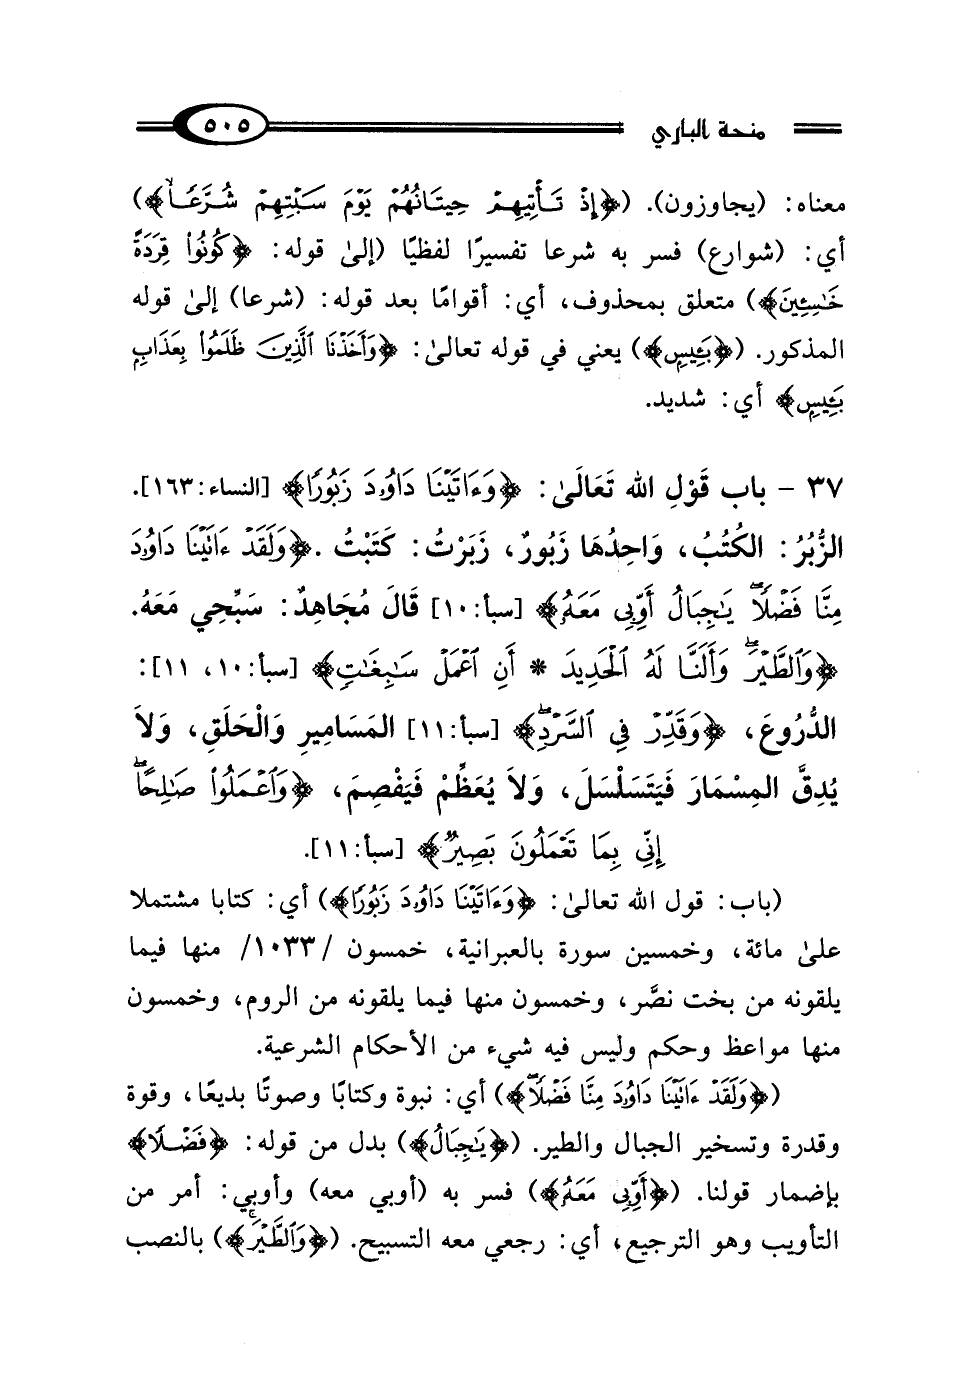 منحة الباري ٥٠٥
معناه: (يجاوزون). (﴿إِذْ تَأْتِيهِمْ حِيتَانُهُمْ يَوْمَ سَبْتِهِمْ شُرَّعًا﴾)
أي: (شوارع) فسر به شرعا تفسيرًا لفظيًا (إلىٰ قوله: ﴿كُونُوا۟ قِرَدَةً
خَٰسِـِٔينَ﴾) متعلق بمحذوف، أي: أقوامًا بعد قوله: (شرعا) إلىٰ قوله
المذكور. (﴿بَـِٔيسٍ﴾) يعني في قوله تعالىٰ: ﴿وَأَخَذْنَا ٱلَّذِينَ ظَلَمُوا۟ بِعَذَابٍ
بَـِٔيسٍ﴾ أي: شديد.
٣٧ - باب قَوْلِ الله تَعَالَىٰ: ﴿وَءَاتَيْنَا دَاوُۥدَ زَبُورًا﴾ [النساء: ١٦٣].
الزُّبُرُ: الكُتُبُ، وَاحِدُهَا زَبُورٌ، زَبَرْتُ: كَتَبْتُ. ﴿وَلَقَدْ ءَاتَيْنَا دَاوُۥدَ
مِنَّا فَضْلًا ۖ يَٰجِبَالُ أَوِّبِى مَعَهُۥ﴾ [سبأ: ١٠] قَالَ مُجَاهِدٌ: سَبِّحِي مَعَهُ.
﴿وَٱلطَّيْرَ ۖ وَأَلَنَّا لَهُ ٱلْحَدِيدَ * أَنِ ٱعْمَلْ سَٰبِغَٰتٍ﴾ [سبأ: ١٠، ١١]:
الدُّرُوعَ، ﴿وَقَدِّرْ فِى ٱلسَّرْدِ ۖ﴾ [سبأ: ١١] المَسَامِيرِ وَالْحَلَقِ، وَلاَ
يُدِقَّ المِسْمَارَ فَيَتَسَلْسَلَ، وَلاَ يُعَظِّمْ فَيَفْصِمَ، ﴿وَٱعْمَلُوا۟ صَٰلِحًا ۖ
إِنِّى بِمَا تَعْمَلُونَ بَصِيرٌ﴾ [سبأ: ١١].
(باب: قول الله تعالىٰ: ﴿وَءَاتَيْنَا دَاوُۥدَ زَبُورًا﴾) أي: كتابا مشتملا
علىٰ مائة، وخمسين سورة بالعبرانية، خمسون /١٠٣٣/ منها فيما
يلقونه من بخت نصَّر، وخمسون منها فيما يلقونه من الروم، وخمسون
منها مواعظ وحكم وليس فيه شيء من الأحكام الشرعية.
(﴿وَلَقَدْ ءَاتَيْنَا دَاوُۥدَ مِنَّا فَضْلًا ۖ﴾) أي: نبوة وكتابًا وصوتًا بديعًا، وقوة
وقدرة وتسخير الجبال والطير. (﴿يَٰجِبَالُ﴾) بدل من قوله: ﴿فَضْلًا﴾
بإضمار قولنا. (﴿أَوِّبِى مَعَهُۥ﴾) فسر به (أوبي معه) وأوبي: أمر من
التأويب وهو الترجيع، أي: رجعي معه التسبيح. (﴿وَٱلطَّيْرَ﴾) بالنصب